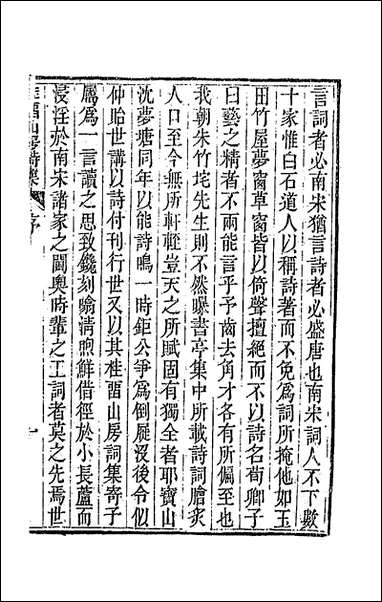 言詞者必南宋猶言詩者必盛唐也南宋詞人不下數
十家惟白石道人以稱詩著而不免爲詞所掩他如玉
田竹屋夢窗草窗皆以倚聲擅絕而不以詩名荀卿子
曰藝之精者不兩能言乎予齒去角才各有所偏至也
我朝朱竹垞先生則不然曝書亭集中所載詩詞膾炙
人口至今無所軒輊豈天之所賦固有獨全者耶寶山
沈夢塘同年以能詩鳴一時鉅公爭爲倒屣沒後令似
仲貽世講以詩付刊行世又以其桂留山房詞集寄子
屬爲一言讀之思致鑱刻喻淸喣鮮借徑於小長蘆而
浸淫於南宋諸家之閫奧時輩之工詞者莫之先焉世
桂畱山房詩集 序 一